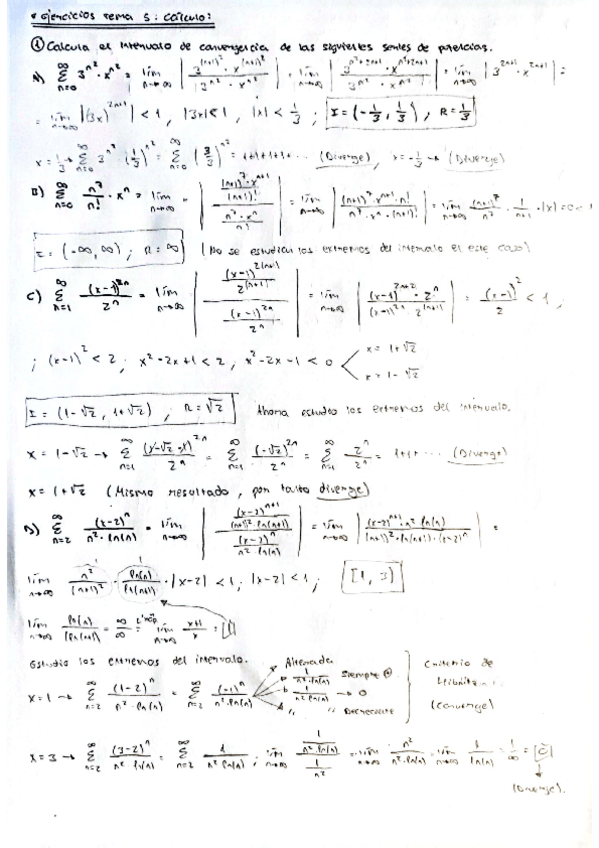 * Ejercicios tema 5: Cálculo:
① Calcula el intervalo de convergencia de las siguientes series de potencias.
A) ∑_{n=0}^{∞} 3^{n²} · x^{n²} = lím_{n→∞} | 3^{(n+1)²} · x^{(n+1)²} / 3^{n²} · x^{n²} | = lím_{n→∞} | 3^{n²+2n+1} · x^{n²+2n+1} / 3^{n²} · x^{n²} | = lím_{n→∞} | 3^{2n+1} · x^{2n+1} | =
= lím_{n→∞} |(3x)^{2n+1}| < 1, |3x| < 1, |x| < 1/3 ; I = (-1/3, 1/3), R = 1/3
x = 1/3 → ∑_{n=0}^{∞} 3^{n²} (1/3)^{n²} = ∑_{n=0}^{∞} (3/3)^{n²} = 1+1+1+1+... (Diverge), x = -1/3 → (Diverge)
B) ∑_{n=0}^{∞} n⁷/n! · x^n = lím_{n→∞} = | (n+1)⁷ · x^{n+1} / (n+1)! / n⁷ · x^n / n! | = lím_{n→∞} | (n+1)⁷ · x^{n+1} · n! / n⁷ · x^n · (n+1)! | = lím_{n→∞} (n+1)⁷/n⁷ · 1/n+1 · |x| = 0 <
I = (-∞, ∞) ; R = ∞ (No se estudian los extremos del intervalo el este caso)
C) ∑_{n=1}^{∞} (x-1)^{2n} / 2^n = lím_{n→∞} | (x-1)^{2(n+1)} / 2^{(n+1)} / (x-1)^{2n} / 2^n | = lím_{n→∞} | (x-1)^{2n+2} · 2^n / (x-1)^{2n} · 2^{(n+1)} | = (x-1)²/2 < 1 ;
; (x-1)² < 2 ; x²-2x+1 < 2 ; x²-2x-1 < 0 x = 1+√2
x = 1-√2
I = (1-√2, 1+√2) ; R = √2 Ahora estudio los extremos del intervalo.
x = 1-√2 → ∑_{n=1}^{∞} (1-√2-1)^{2n} / 2^n = ∑_{n=1}^{∞} (-√2)^{2n} / 2^n = ∑_{n=1}^{∞} 2^n/2^n = 1+1+... (Diverge)
x = 1+√2 (Mismo resultado, por tanto diverge)
D) ∑_{n=2}^{∞} (x-2)^n / n² · ln(n) = lím_{n→∞} | (x-2)^{n+1} / (n+1)² · ln(n+1) / (x-2)^n / n² · ln(n) | = lím_{n→∞} | (x-2)^{n+1} · n² ln(n) / (n+1)² · ln(n+1) · (x-2)^n | =
lím_{n→∞} n²/(n+1)² · ln(n)/ln(n+1) · |x-2| < 1 ; |x-2| < 1 ; [1, 3)
lím_{n→∞} ln(n)/ln(n+1) = ∞/∞ = L'Hôp lím_{n→∞} x+1/x = 1
Estudio los extremos del intervalo.
x = 1 → ∑_{n=2}^{∞} (1-2)^n / n² · ln(n) = ∑_{n=2}^{∞} (-1)^n / n² · ln(n) Alternada: 1/n² · ln(n) Siempre ⊕
1/n² ln(n) → 0
" " Decreciente
Criterio de Leibnitz (converge)
x = 3 → ∑_{n=2}^{∞} (3-2)^n / n² · ln(n) = ∑_{n=2}^{∞} 1 / n² ln(n) ; lím_{n→∞} 1/n² · ln(n) / 1/n² = lím_{n→∞} n² / n² · ln(n) = lím_{n→∞} 1/ln(n) = 1/∞ = 0
(Converge).